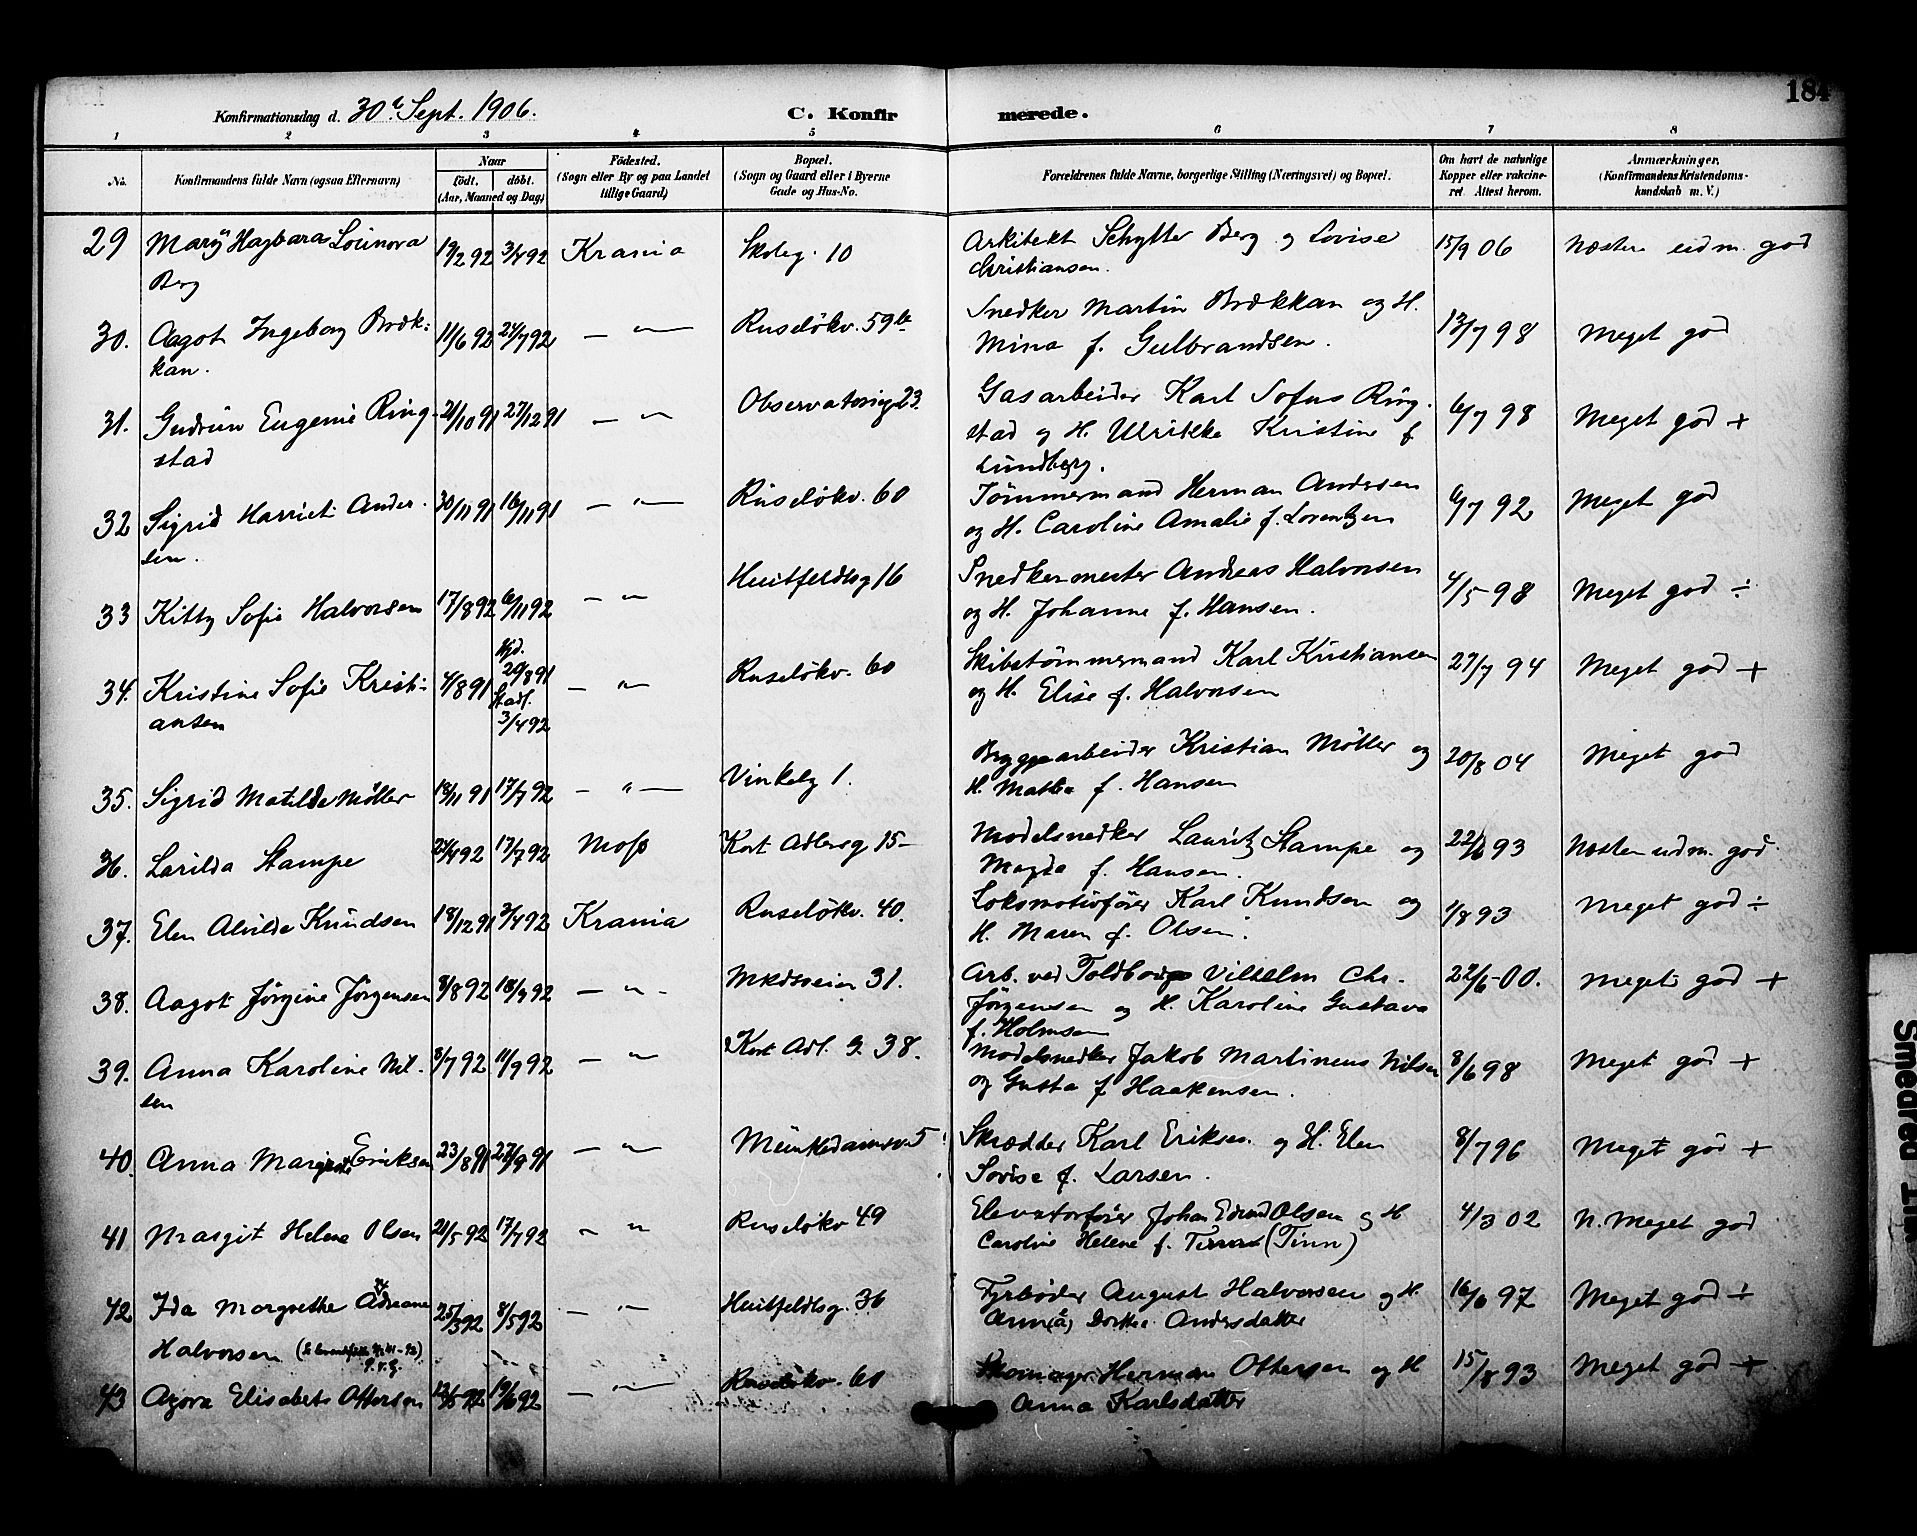 184
Konfirmationsdag d. 30t Sept. 1906.
C. Konfirmerede.
1 2 3 4 5 6 7 8
No. Konfirmandens fulde Navn (ogsaa Efternavn) Naar födt. döbt. (Aar, Maaned og Dag) Födested. (Sogn eller By og paa Landet tillige Gaard) Bopæl. (Sogn og Gaard eller i Byerne Gade og Hus-No. Forældrenes fulde Navne, borgerlige Stilling (Næringsvei) og Bopæl. Om havt de naturlige Kopper eller vakcineret. Attest herom. Anmærkninger. (Konfirmandens Kristendomskundskab m. V.)
29 Mary Hagbara Berg 19/2 92 3/4 92 Krania Skoleg. 10 Arkitekt Schytter Berg og Lovise Christiansen. 15/9 06 Næsten udm. god
30. Aagot Ingeborg Brækkan. 11/6 92 24/7 92 — " — Ruseløkv. 59 Snedker Martin Brækkan og H. Mina f. Gulbrandsen. 13/7 98 Meget god
31. Gudrun Eugenie Ringstad 21/10 91 27/12 91 — " Observatorieg 23. Gasarbeider Karl Sofus Ringstad og H. Ulrikke Kristine f Lundberg. 6/7 98 Meget god +
32 Sigrid Harriet Andersen. 30/11 91 16/11 91 — " — Ruseløkv. 60 Tømmermand Herman Andersen og H. Caroline Amalie f. Lorentzen 6/7 92 Meget god
33 Kitty Sofie Halvorsen 17/8 92 6/11 92 — " Huitfeldtsg 16 Snedkermester Andreas Halvorsen og H. Johanne f. Hansen. 4/5 98 Meget god ÷
34. Kristine Sofie Kristiansen 4/8 91 Hjd. 29/8 91 Stadf. 3/4 92 — " — Ruseløkv. 60 Skibstømmermand Karl Kristiansen og H. Elise f. Halvorsen 27/7 94 Meget god +
35. Sigrid Matilde Møller 18/11 91 17/7 92 — " — Vinkelg 1. Bryggearbeider Kristian Møller og H. Mathea f. Hansen 20/8 04 Meget god
36. Larilda Stampe 17/7 92 Moss Kort Adlersg 15 Modelsnedker Lauritz Stampe og Magda f. Hansen. 93 Næsten udm. god.
37. Elen Alvilde Knudsen 18/12 91 3/4 92 Krania Ruseløkv. 40. Lokomotivfører Karl Knudsen og H. Maren f. Olsen. 1/8 93 Meget god ÷
38. Aagot Jørgine Jørgensen 8/8 92 18/9 92 — " — Mkdsveien 31. Arb. ved Toldbod Vilhelm Chr. Jørgensen og H. Karoline Gustava f. Holmsen 22/6 00. Meget god +
39. Anna Karoline Nilsen 8/7 92 11/9 92 — " Kort Adl. g. 38. Modelsnedker Jakob Martineus Nilsen og Gusta f Haakensen. 8/6 98 Meget god +
40. Anna Margrete Eriksen 23/8 91 27/9 91 — " Munkedamsv. 5 Skrædder Karl Eriksen og H. Elen Lovise f. Larsen. 8/7 96 Meget god +
41 Margit Helene Olsen 21/5 92 17/7 92 — " Ruseløkv 49 Elevatorfører Johan Edvard Olsen og H Caroline Helene f. (Tinn) 4/3 02 N. Meget god
42 Ida Margrethe Adriane Halvorsen 25/3 92 8/5 92 — " — Huitfeldtsg. 36 Fyrbøder August Halvorsen og H. Ann(a) Dorthea Andersdatter 16/6 97 Meget god ÷
43 Agora Elisabeth Ottersen 19/6 92 — " — Ruseløkv. 60 Skomager Herman Ottersen og H Anna Karlsdatter 15/8 93 Meget god +